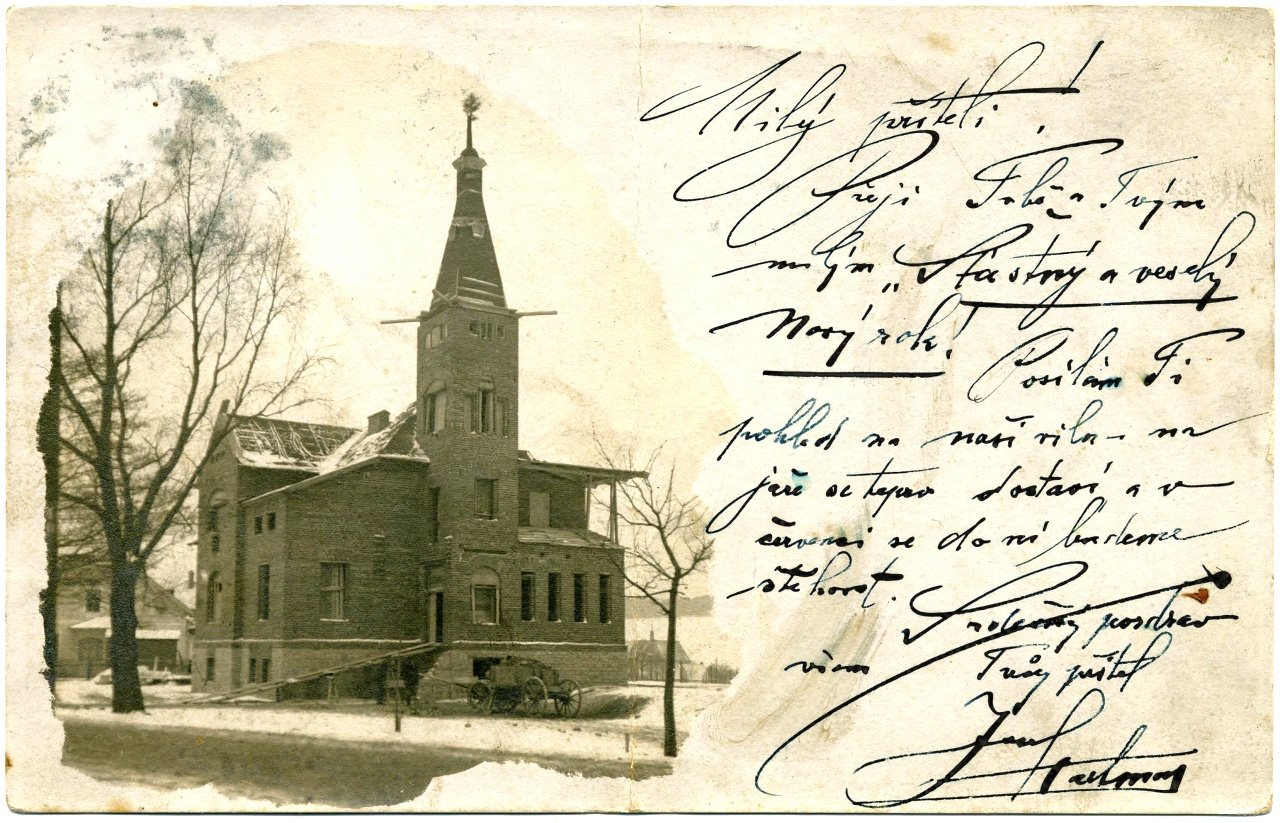 Milý příteli!
Přeji Tobě a Tvým
milým „Šťastný a veselý
Nový rok!
Posílám Ti
pohled na naší vilu – na
jaře se teprv dostaví a v
červenci se do ní budeme
stěhovat.
Srdečný pozdrav
všem Tvůj přítel